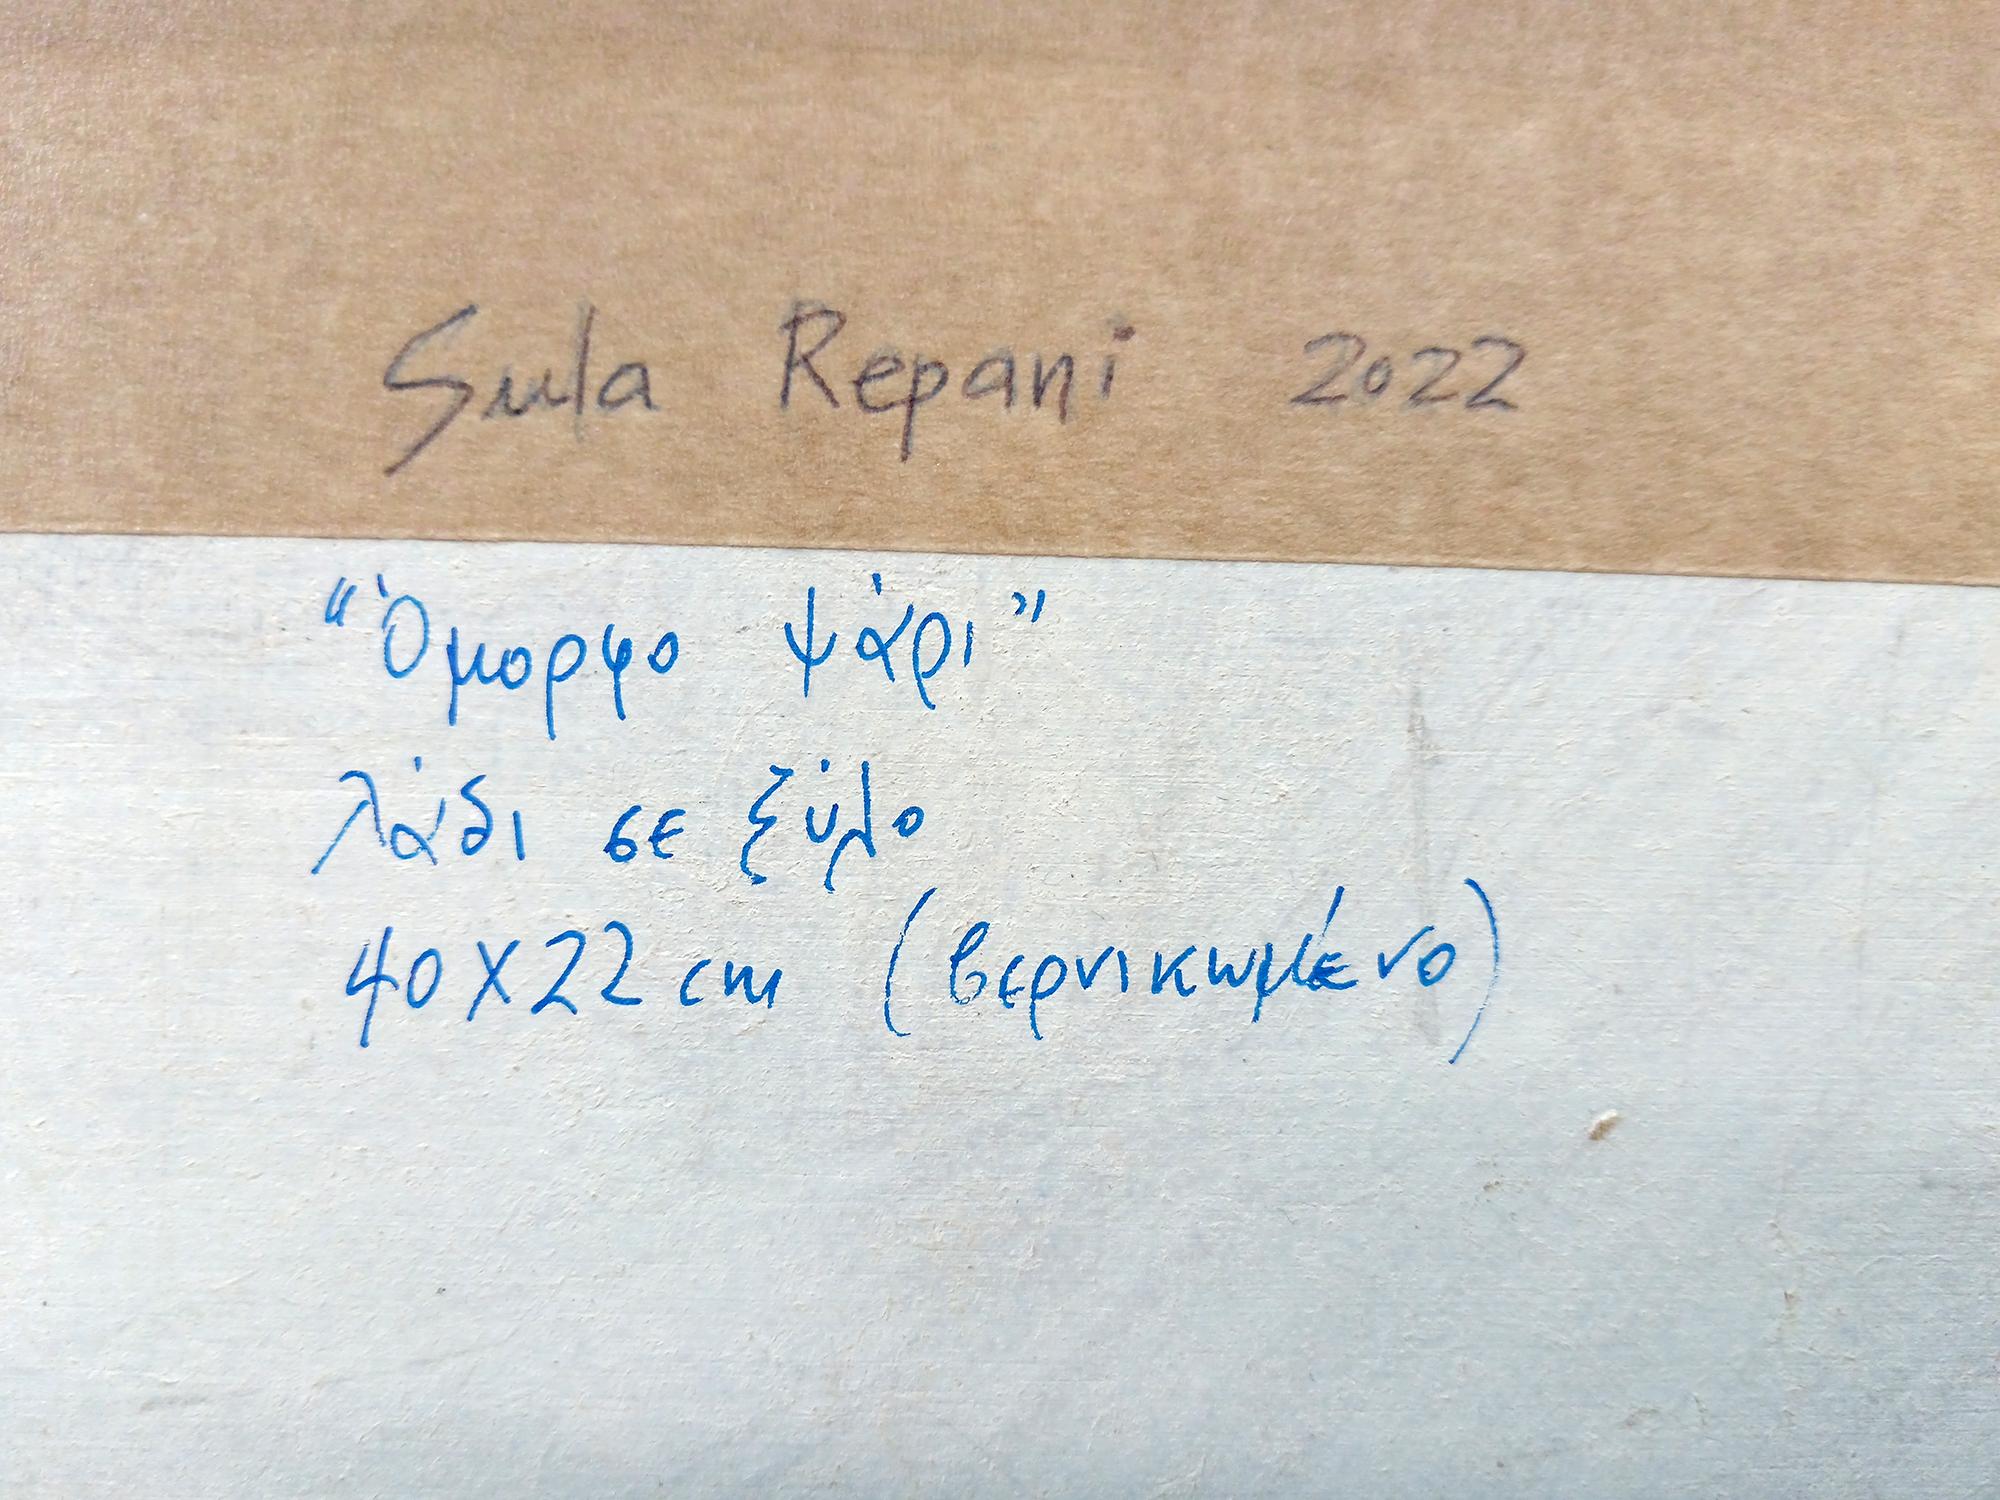 Sula Repani 2022
"Όμορφο ψάρι"
λάδι σε ξύλο
40X22 cm (βερνικωμένο)